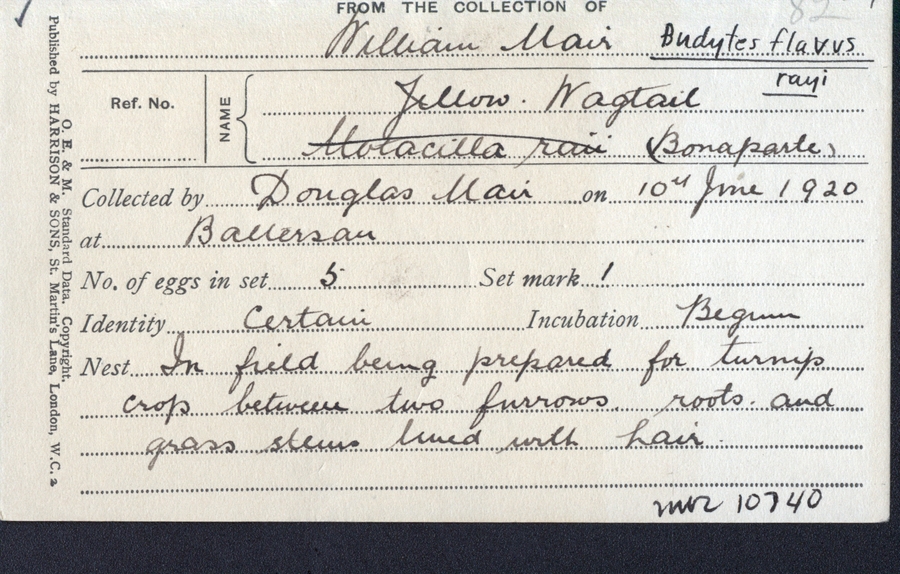 82
FROM THE COLLECTION OF
William Mair Budytes flavus
rayi
Ref. No.
NAME
Yellow. Wagtail
Motacilla raii (Bonaparte)
Collected by Douglas Mair on 10th June 1920
at
No. of eggs in set 5 Set mark 1
Identity Certain Incubation Begun
Nest In field being prepared for turnip
crop between two furrows. roots. and
grass stems lined with hair.
10740
O. E. & M. Standard Data. Copyright.
Published by HARRISON & SONS, St. Martin's Lane, London, W.C. 2